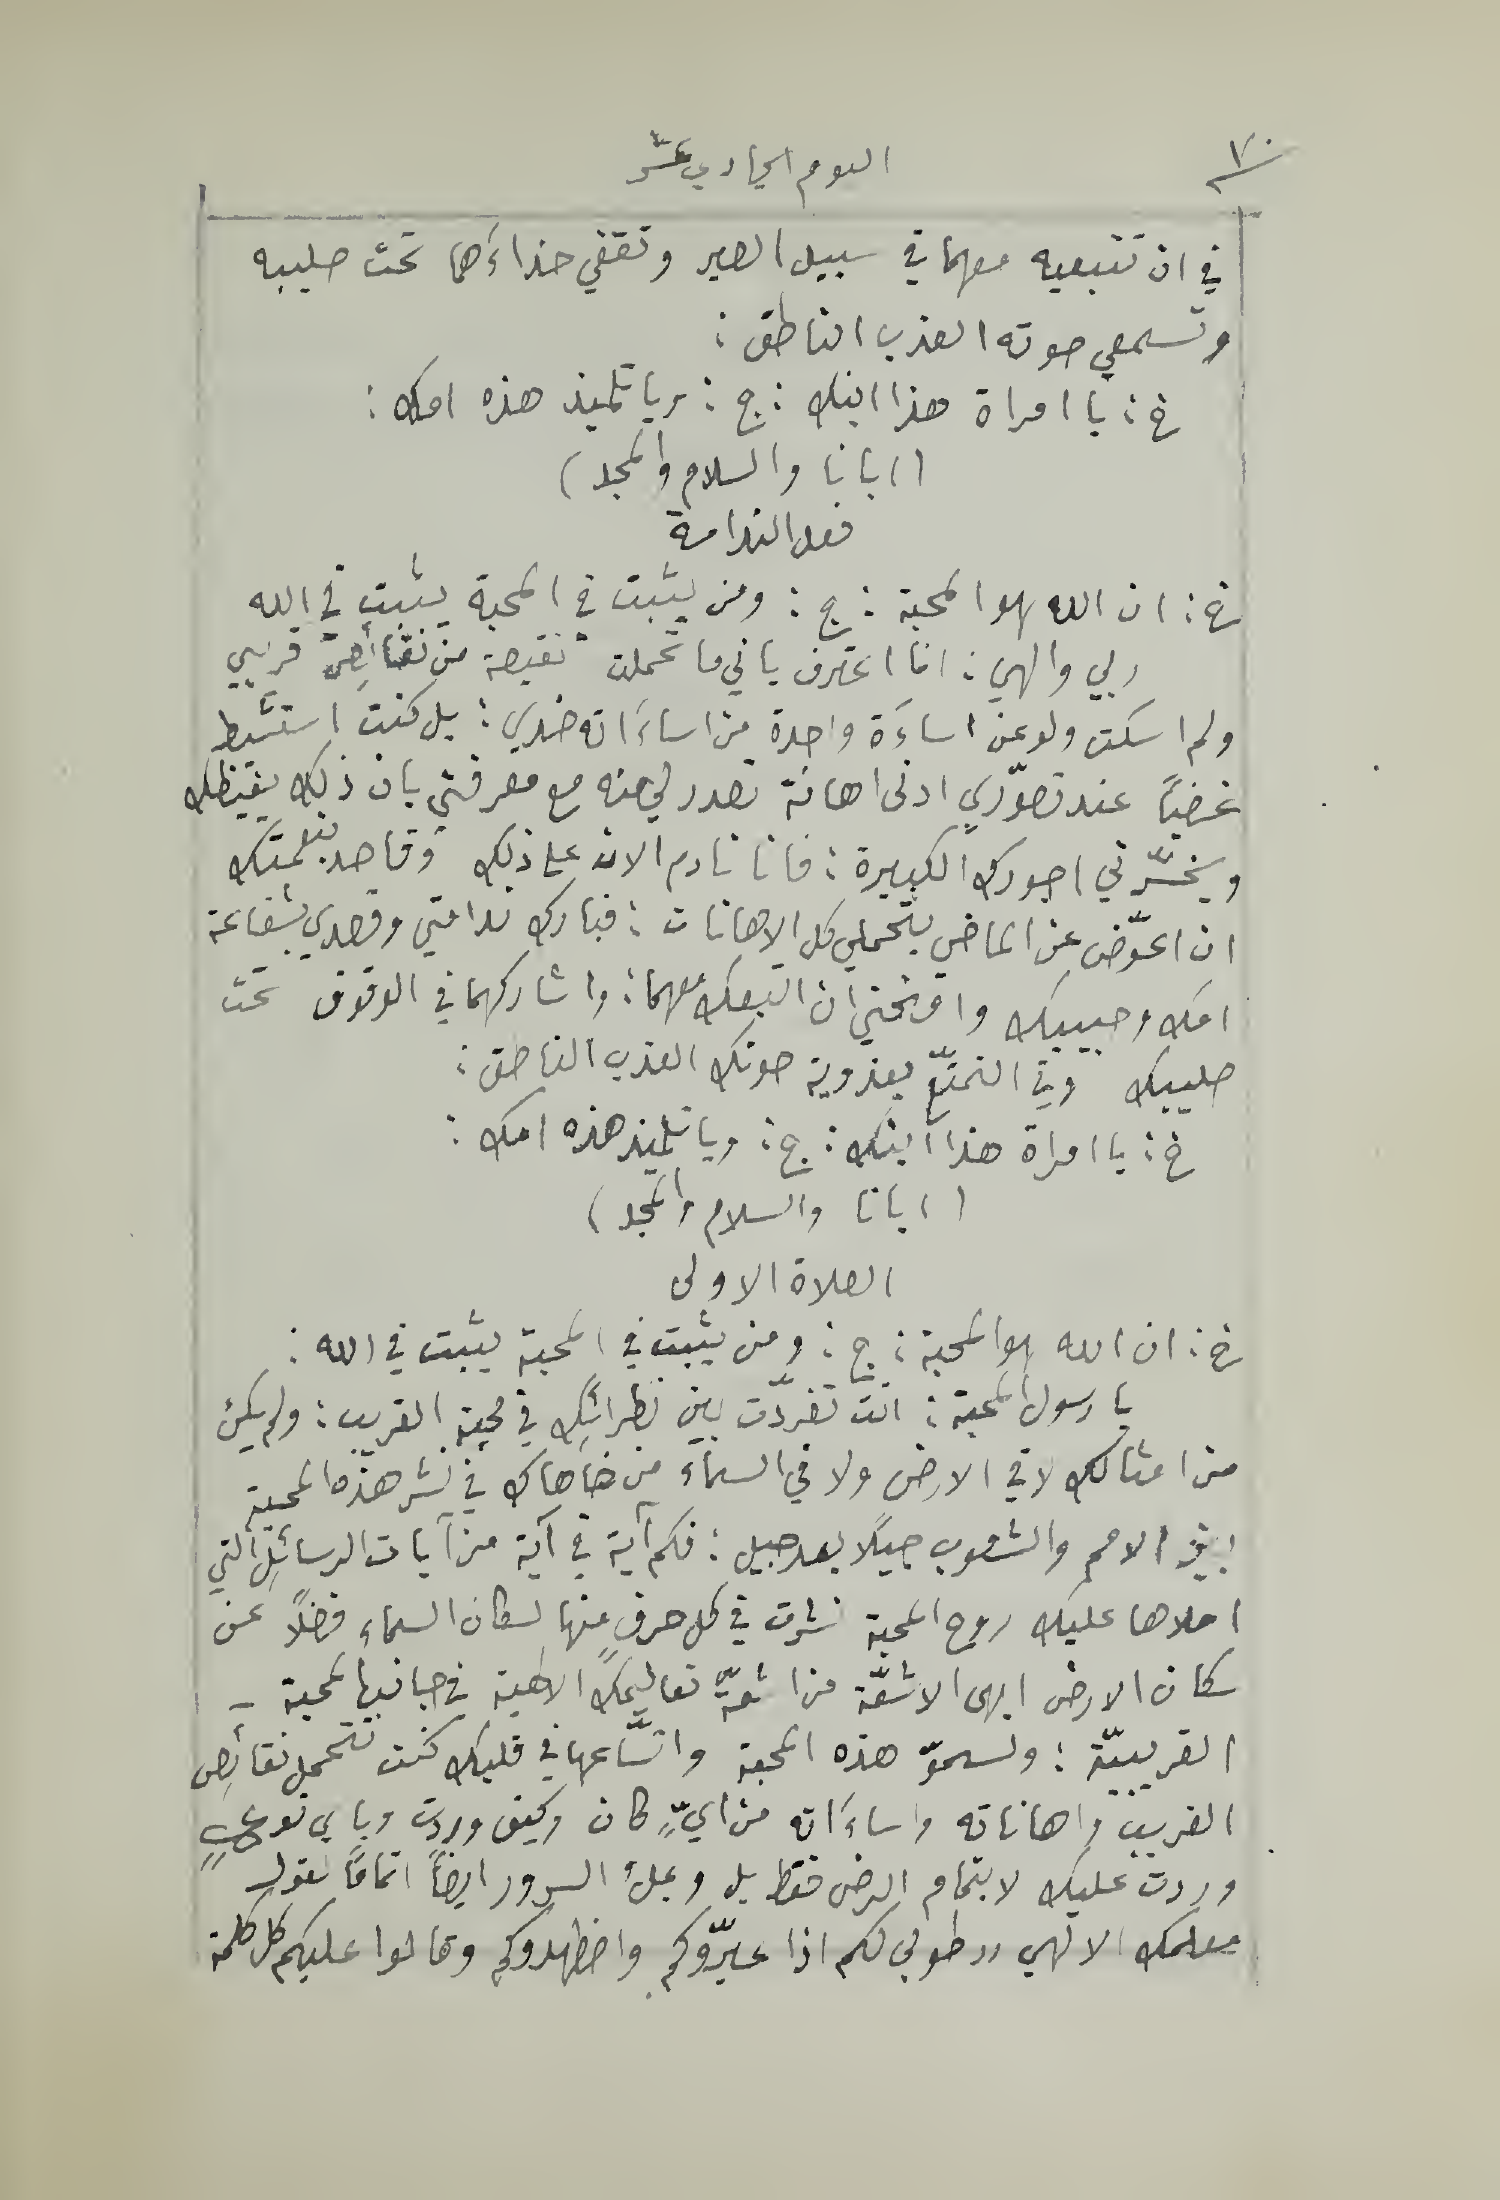 ٧٠
اليوم الحادي عشر
في ان تتبعيه معهما في سبيل الصبر وتقفي حذاءَهما تحت صليبه
وتسمعي صوته العذب الناطق :
خ : يا امراة هذا ابنك : ج : ويا تلميذ هذه امك :
( ابانا والسلام والمجد )
فعل الندامة
خ : ان الله هو المحبة : ج : ومن يثبت في المحبة يثبت في الله
ربي والهي : انا اعترف باني ما تحملت نقيصة من نقائص قريبي
ولم اسكت ولو عن اساءَة واحدة من اساءَاته ضدي : بل كنت استشيط
غضباً عند تصوّري ادنى اهانة تصدر لي منه مع معرفتي بان ذلك يغيظك
ويخسّرني اجورك الكبيرة : فانا نادم الان على ذلك وقاصد بنعمتك
ان اعوّض عن الماضي بتحملي كل الاهانات : فبارك ندامتي وقصدي بشفاعة
امك وحبيبك وامنحني ان اتبعك معهما : واشاركهما في الوقوف تحت
صليبك وفي التمتّع بعذوبة صوتك العذب الناطق :
خ : يا امراة هذا ابنك : ج : ويا تلميذ هذه امك :
( ابانا والسلام والمجد )
الصلاة الاولى
خ : ان الله هو المحبة : ج : ومن يثبت في المحبة يثبت في الله :
يا رسول المحبة : انت تفرّدت بين نظرائِك في محبة القريب : ولم يكن
من امثالك لا في الارض ولا في السماء من ضاهاك في نشر هذه المحبة
بين الامم والشعوب جيلًا بعد جيل : فكم آية في آية من آيات الرسائِل التي
املاها عليك روح المحبة نشرت في كل حرفٍ منها لسكان السماء فضلًا عن
سكان الارض ابهى الاشعّة من اشعّة تعاليمك الالهية في جانب المحبة -
القريبيّة : ولسموّ هذه المحبة واتّساعها في قلبك كنت تتحمل نقائِص
القريب واهاناته واساءَاته من ايٍّ كان وكيف وردت وباي نوعٍ
وردت عليك لا بتمام الرضى فقط بل وبملءِ السرور ايضاً اتماماً لقول
معلمك الالهي ,, طوبى لكم اذا عيّروكم واضطهدوكم وقالوا عليكم كل كلمة